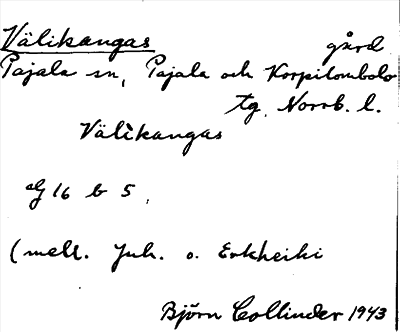 Välikangas gård
Pajala sn, Pajala och Korpilombolo
tg. Norrb. l.
Välikangas
16 b 5,
(mell. Juh. o. Erkheiki
Björn Collinder 1943